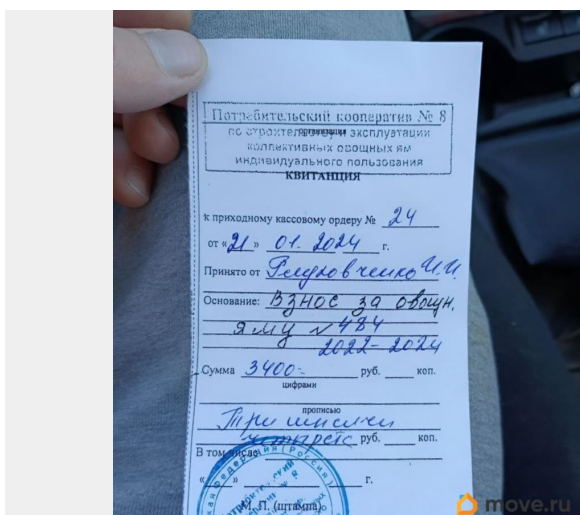 Потребительский кооператив № 8
организация
по строительству и эксплуатации
коллективных овощных ям
индивидуального пользования
КВИТАНЦИЯ
к приходному кассовому ордеру № 24
от « 21 » 01. 2024 г.
Принято от И.И.
Основание: Взнос за овощн.
яму № 484
2022-2024
Сумма 3400= руб. коп.
цифрами
прописью
Три тысячи
четыреста руб. коп.
В том числе
« » г.
М. П. (штампа)
move.ru